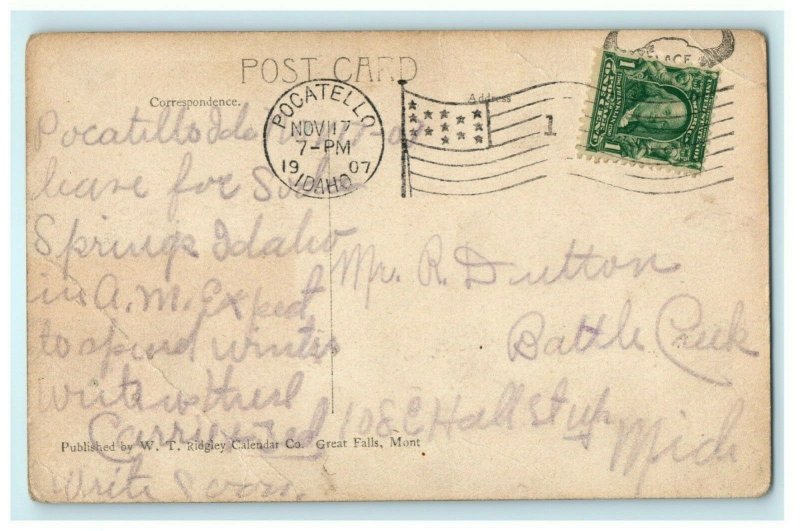 POST CARD
Correspondence.
Address
POCATELLO
NOV 17
7-PM
1907
IDAHO
1
Pocatello Ida Nov 17-07
leave for Soda
Springs Idaho
in A.M. Expect
to spend winter
write us there
Carrie and
write soon.
Mr. R. Dutton
Battle Creek
108 E Hall St
Mich
Published by W. T. Ridgley Calendar Co. Great Falls, Mont